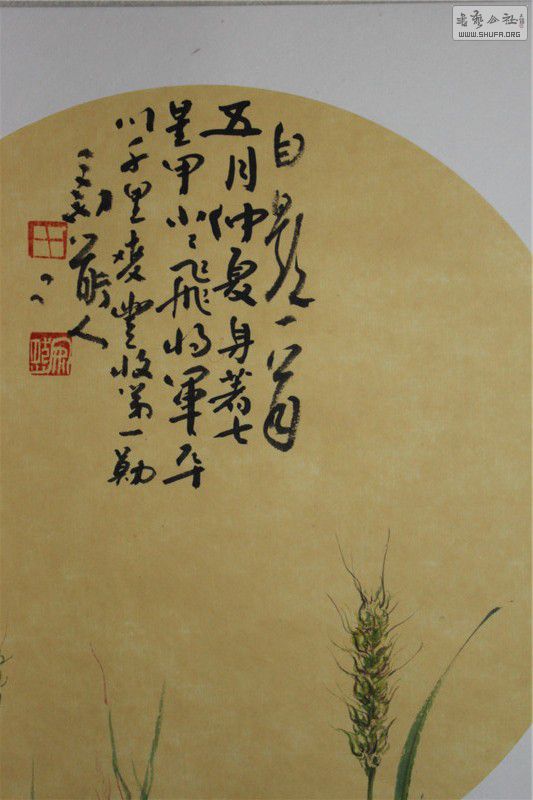 書藝公社
WWW.SHUFA.ORG
自題一首
五月仲夏身著七
星甲小小飛將軍平
川千里麥豐收第一勤
人